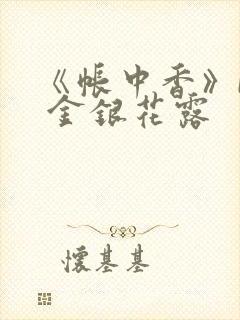 《帳中香》
金銀花露
懷基基